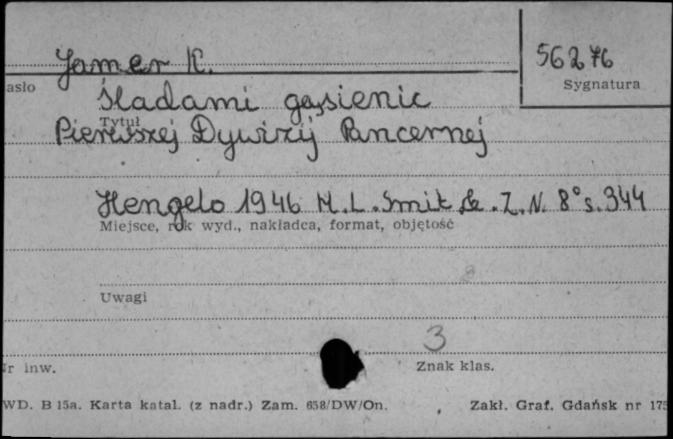 Jamer K.
56276
asło
Sygnatura
Śladami gąsienic
Tytuł
Pierwszej Dywizij Pancernej
Hengelo 1946 H.L. Smit & Z.N. 8° s. 344
Miejsce, rok wyd., nakładca, format, objętość
Uwagi
3
r inw.
Znak klas.
WD. B 15a. Karta katal. (z nadr.) Zam. 658/DW/On.
Zakł. Graf. Gdańsk nr 175